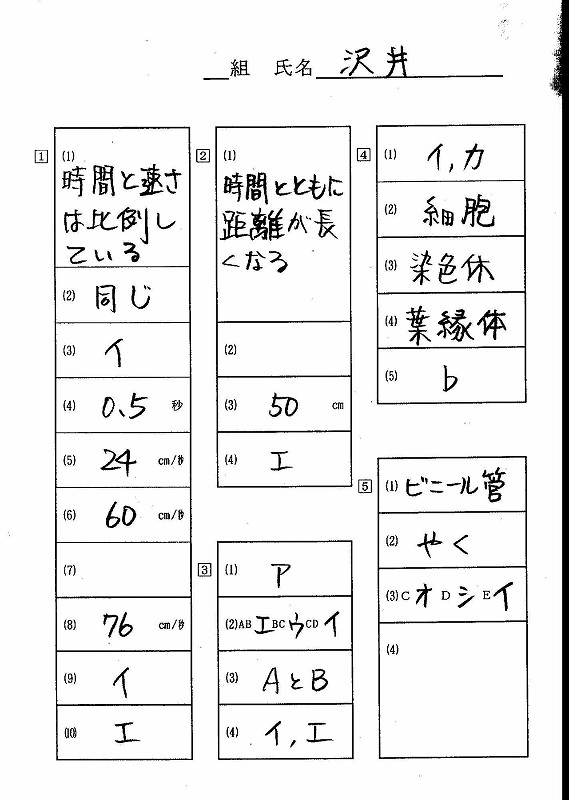 組 氏名 沢井
1
(1)
時間と速さ
は比例し
ている
(2) 同じ
(3) イ
(4) 0.5 秒
(5) 24 cm/秒
(6) 60 cm/秒
(7)
(8) 76 cm/秒
(9) イ
(10) エ
2
(1)
時間とともに
距離が長
くなる
(2)
(3) 50 cm
(4) エ
3
(1) ア
(2)AB エ BC ウ CD イ
(3) AとB
(4) イ,エ
4
(1) イ,カ
(2) 細胞
(3) 染色休
(4) 葉縁体
(5) b
5
(1) ビニール管
(2) やく
(3)C オ D シ E イ
(4)